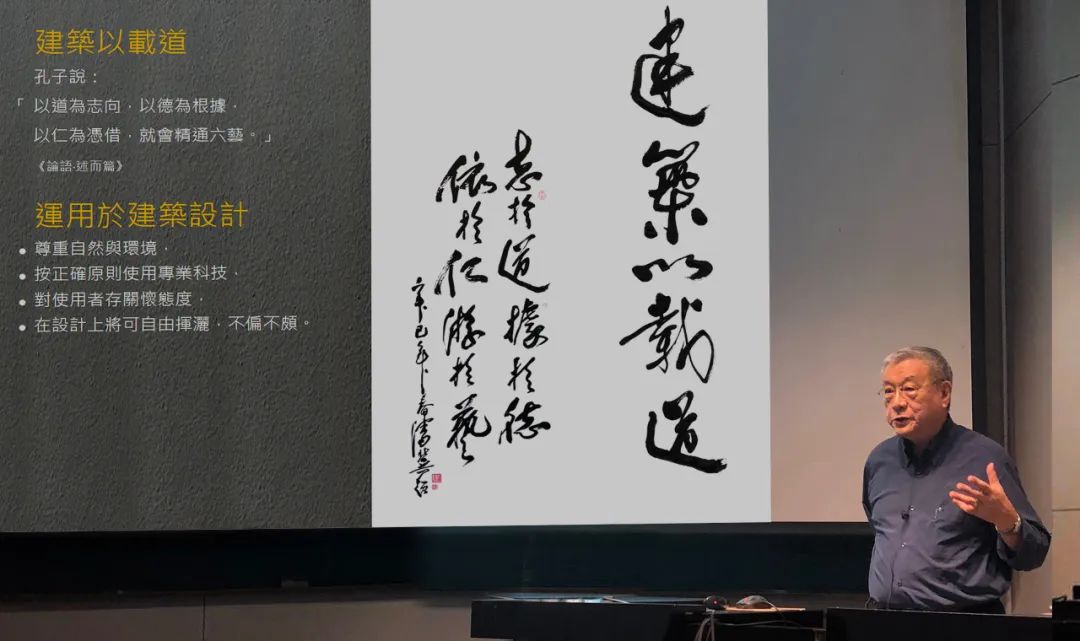 建築以載道
孔子說：
「以道為志向，以德為根據，
以仁為憑借，就會精通六藝。」
《論語·述而篇》
運用於建築設計
• 尊重自然與環境，
• 按正確原則使用專業科技，
• 對使用者存關懷態度，
• 在設計上將可自由揮灑，不偏不頗。
建築以載道
志於道據於德
依於仁游於藝
辛巳年